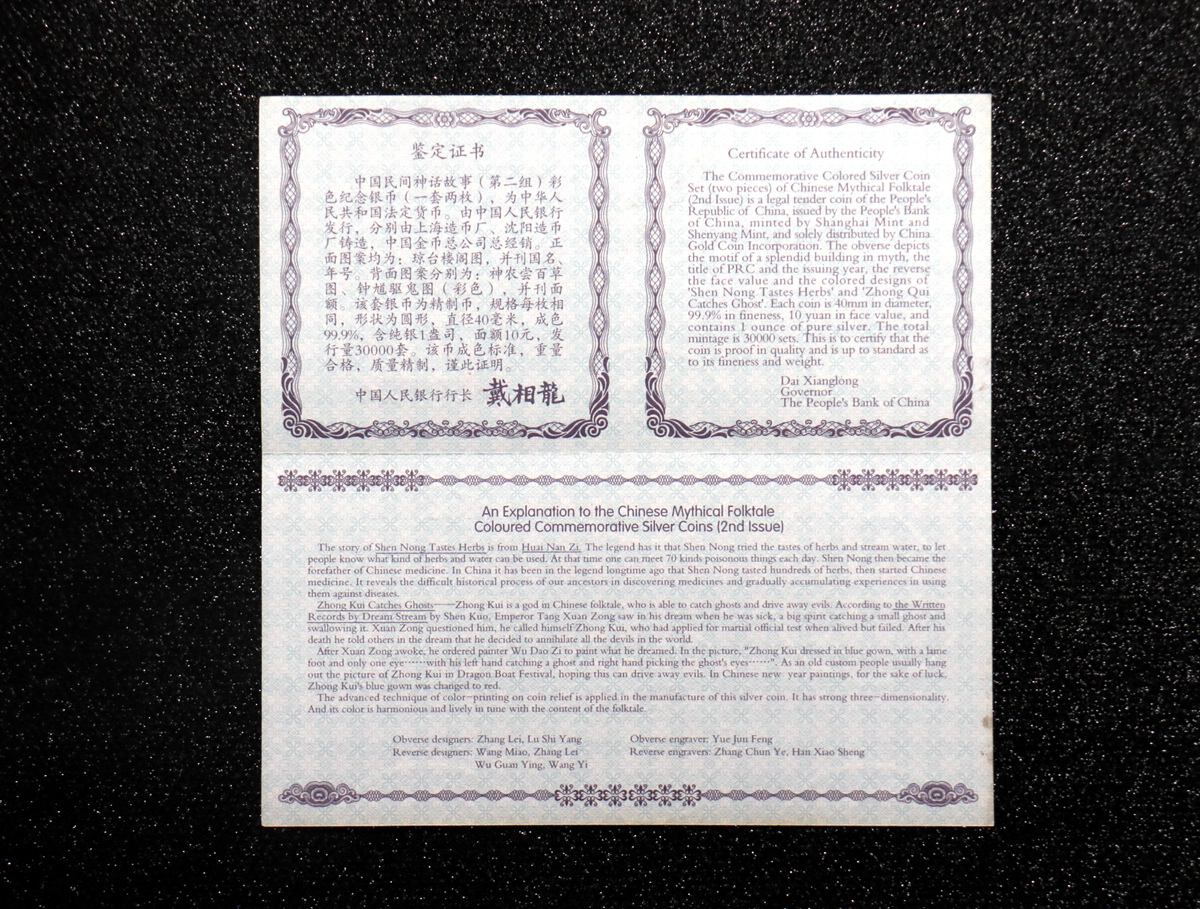 鉴定证书
中国民间神话故事（第二组）彩
色纪念银币（一套两枚），为中华人
民共和国法定货币。由中国人民银行
发行，分别由上海造币厂、沈阳造币
厂铸造，中国金币总公司总经销。正
面图案均为：琼台楼阁图，并刊国名、
年号。背面图案分别为：神农尝百草
图、钟馗驱鬼图（彩色），并刊面
额。该套银币为精制币，规格每枚相
同，形状为圆形，直径40毫米，成色
99.9%，含纯银1盎司，面额10元，发
行量30000套。该币成色标准，重量
合格，质量精制，谨此证明。
中国人民银行行长 戴相龍
Certificate of Authenticity
The Commemorative Colored Silver Coin
Set (two pieces) of Chinese Mythical Folktale
(2nd Issue) is a legal tender coin of the People's
Republic of China, issued by the People's Bank
of China, minted by Shanghai Mint and
Shenyang Mint, and solely distributed by China
Gold Coin Incorporation. The obverse depicts
the motif of a splendid building in myth, the
title of PRC and the issuing year, the reverse
the face value and the colored designs of
'Shen Nong Tastes Herbs' and 'Zhong Qui
Catches Ghost'. Each coin is 40mm in diameter,
99.9% in fineness, 10 yuan in face value, and
contains 1 ounce of pure silver. The total
mintage is 30000 sets. This is to certify that the
coin is proof in quality and is up to standard as
to its fineness and weight.
Dai Xianglong
Governor
The People's Bank of China
An Explanation to the Chinese Mythical Folktale
Coloured Commemorative Silver Coins (2nd Issue)
The story of Shen Nong Tastes Herbs is from Huai Nan Zi. The legend has it that Shen Nong tried the tastes of herbs and stream water, to let
people know what kind of herbs and water can be used. At that time one can meet 70 kinds poisonous things each day. Shen Nong then became the
forefather of Chinese medicine. In China it has been in the legend longtime ago that Shen Nong tasted hundreds of herbs, then started Chinese
medicine. It reveals the difficult historical process of our ancestors in discovering medicines and gradually accumulating experiences in using
them against diseases.
Zhong Kui Catches Ghosts——Zhong Kui is a god in Chinese folktale, who is able to catch ghosts and drive away evils. According to the Written
Records by Dream Stream by Shen Kuo, Emperor Tang Xuan Zong saw in his dream when he was sick, a big spirit catching a small ghost and
swallowing it. Xuan Zong questioned him, he called himself Zhong Kui, who had applied for martial official test when alived but failed. After his
death he told others in the dream that he decided to annihilate all the devils in the world.
After Xuan Zong awoke, he ordered painter Wu Dao Zi to paint what he dreamed. In the picture, "Zhong Kui dressed in blue gown, with a lame
foot and only one eye······with his left hand catching a ghost and right hand picking the ghost's eyes······". As an old custom people usually hang
out the picture of Zhong Kui in Dragon Boat Festival, hoping this can drive away evils. In Chinese new year paintings, for the sake of luck,
Zhong Kui's blue gown was changed to red.
The advanced technique of color-printing on coin relief is applied in the manufacture of this silver coin. It has strong three-dimensionality.
And its color is harmonious and lively in tune with the content of the folktale.
Obverse designers: Zhang Lei, Lu Shi Yang
Reverse designers: Wang Miao, Zhang Lei
Wu Guan Ying, Wang Yi
Obverse engraver: Yue Jun Feng
Reverse engravers: Zhang Chun Ye, Han Xiao Sheng